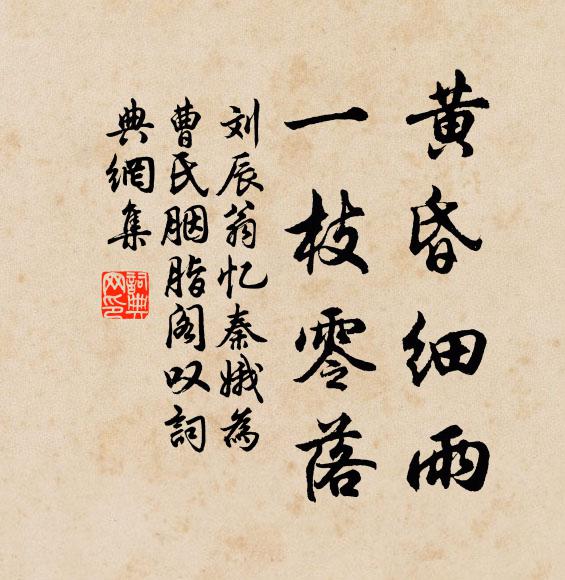 黄昏细雨
一枝零落
刘辰翁忆秦娥為
曹氏胭脂阁叹詞
典網集
詞典网印